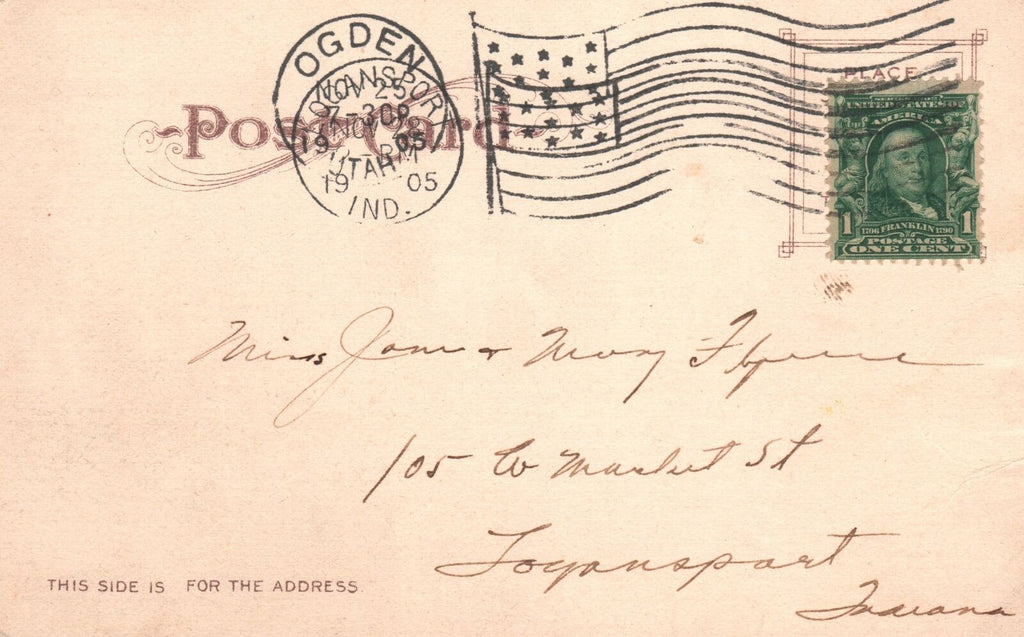 OGDEN
LOGANSPORT
NOV 25
7-30P
NOV 28
1905
UTAH
1905
IND.
Post Card
PLACE
SERIES 1902
UNITED STATES OF
AMERICA
1 1
1706 FRANKLIN 1790
POSTAGE
ONE CENT
Miss Jane & Mary
105 W Market St
Logansport
Indiana
THIS SIDE IS FOR THE ADDRESS.